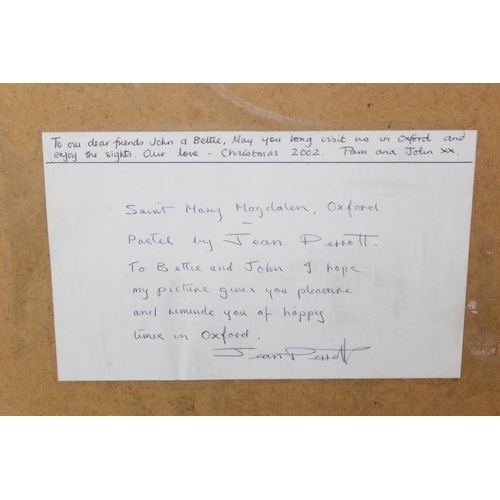 To our dear friends John & Bettie, May you long visit us in Oxford and
enjoy the sights. Our love - Christmas 2002. Pam and John xx.
Saint Mary Magdalen, Oxford
-
Pastel by Jean Perrott.
To Bettie and John. I hope
my picture gives you pleasure
and reminds you of happy
times in Oxford.
Jean Perrott